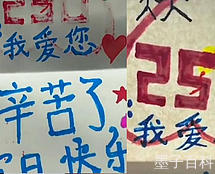 我爱您
辛苦了
快乐
25
我爱
墨子百科